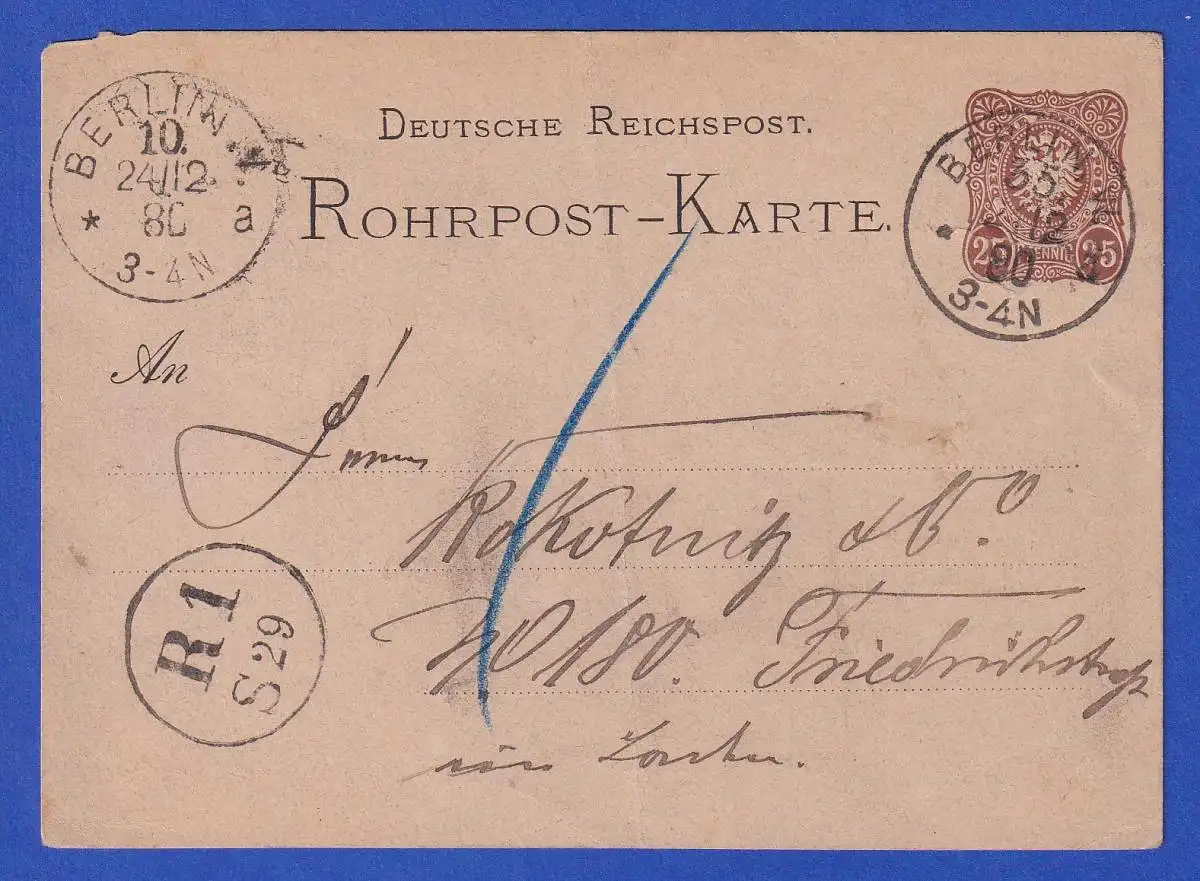 BERLIN W
10.
24/12
80 a
3-4N
DEUTSCHE REICHSPOST.
ROHRPOST-KARTE.
BERLIN
12
80
3-4N
25 PFENNIG 25
An
Rokotnitz & Co.
W 180. Friedrichstraße
im Laden.
R1
S29